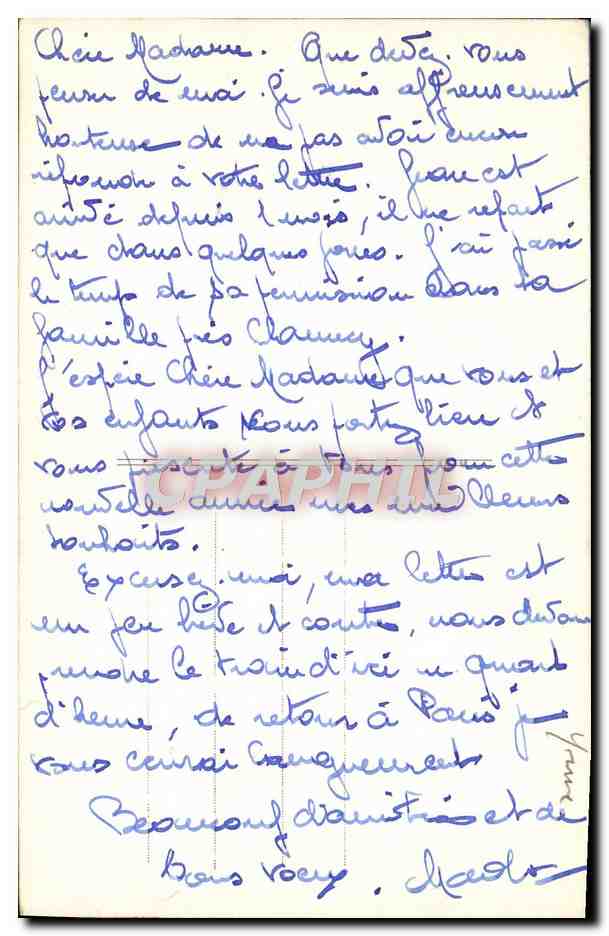 Chère Madame. Que devez-vous
penser de moi. Je suis affreusement
honteuse de ne pas avoir encore
répondu à votre lettre. Jean est
arrivé depuis 1 mois, il ne repart
que dans quelques jours. J'ai passé
le temps de sa permission dans sa
famille près Clamecy.
J'espère Chère Madame que vous et
vos enfants vous portez bien et
vous présente à tous pour cette
nouvelle année mes meilleurs
souhaits.
Excusez-moi, ma lettre est
un peu brève et courte, nous devons
prendre le train d'ici un quart
d'heure, de retour à Paris je
vous écrirai longuement
Beaucoup d'amitiés et de
bons vœux.
CPAPHIL